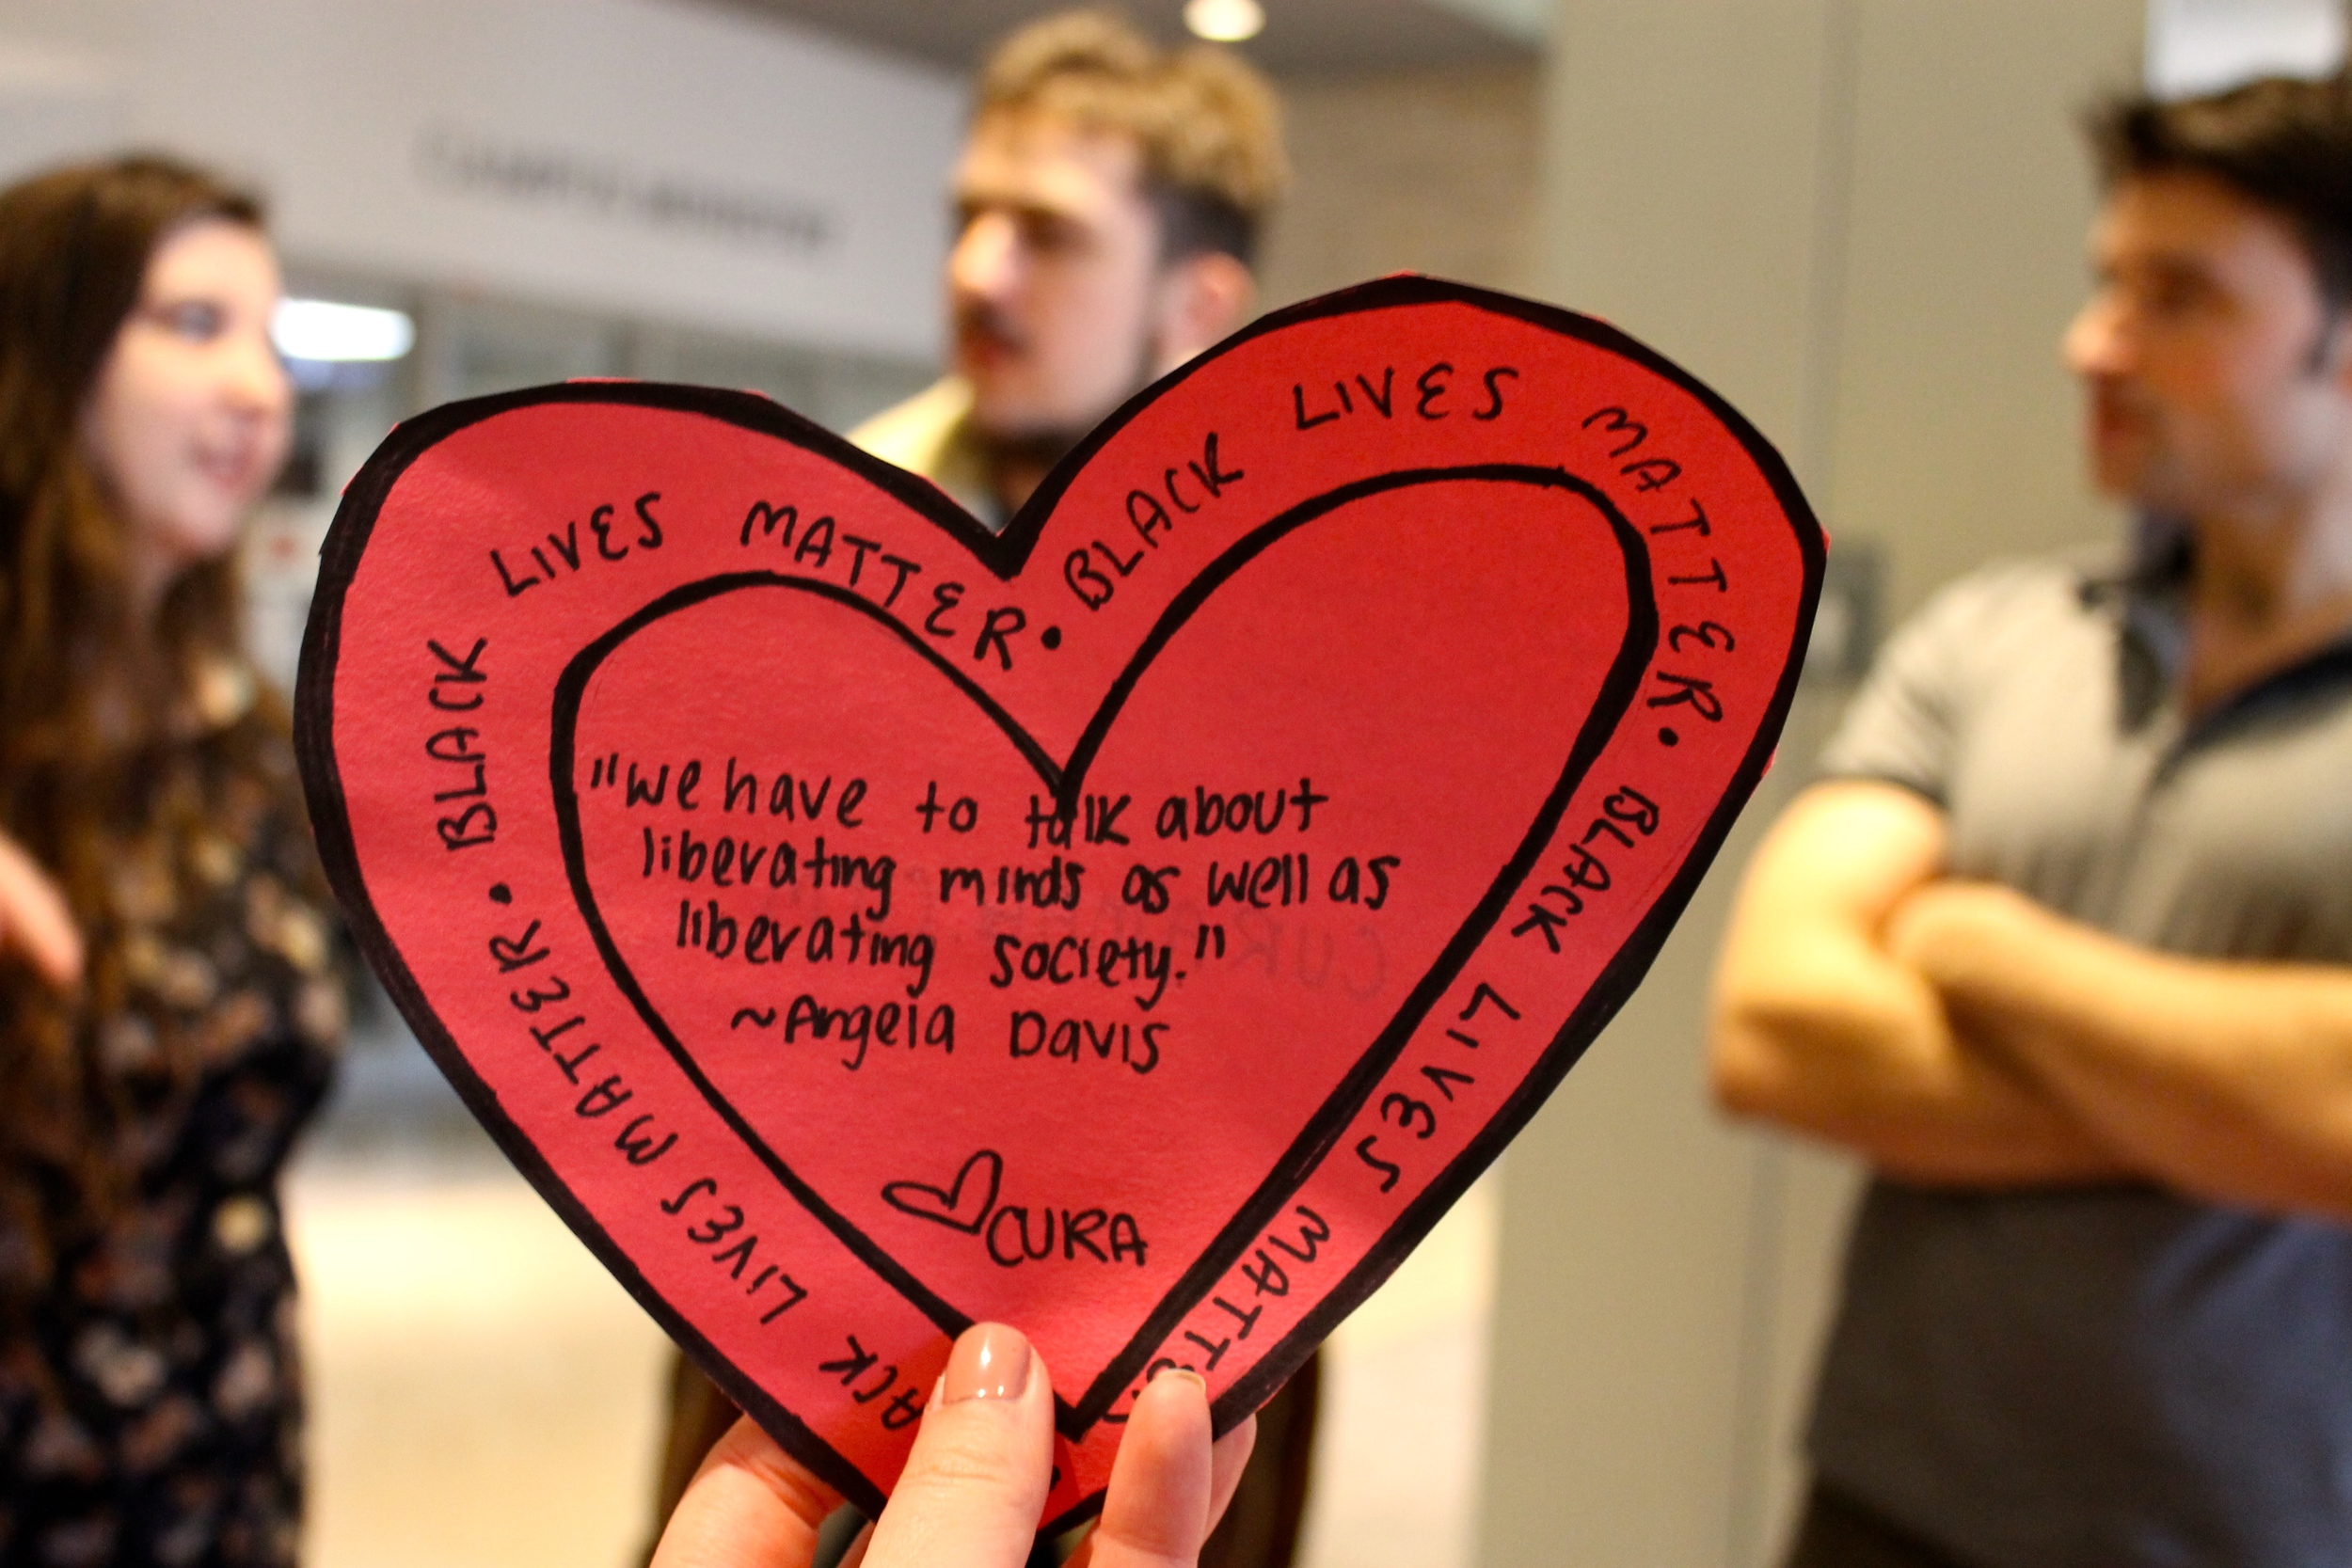 BLACK LIVES MATTER • BLACK LIVES MATTER • BLACK LIVES MATTE
LIVES MATTER •
"we have to talk about
liberating minds as well as
liberating society."
~Angela Davis
CURA